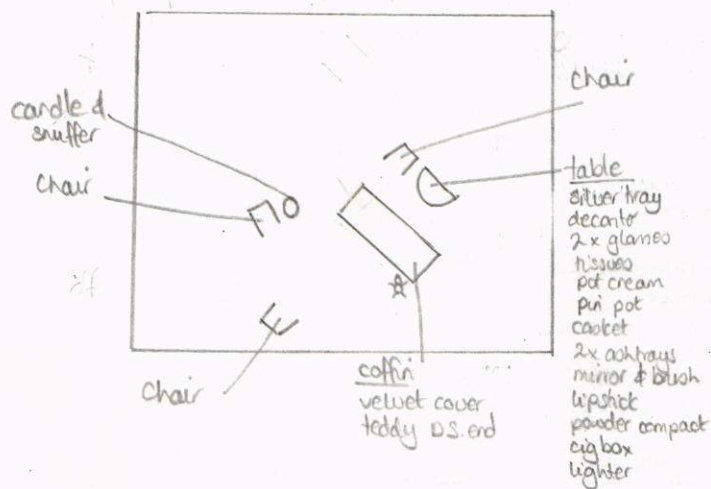 candle &
snuffer
chair
chair
chair
table
silver tray
decanto
2 x glasses
tissues
pot cream
pin pot
casket
2x ashtrays
mirror & brush
lipstick
powder compact
cig box
lighter
coffin
velvet cover
teddy D.S. end